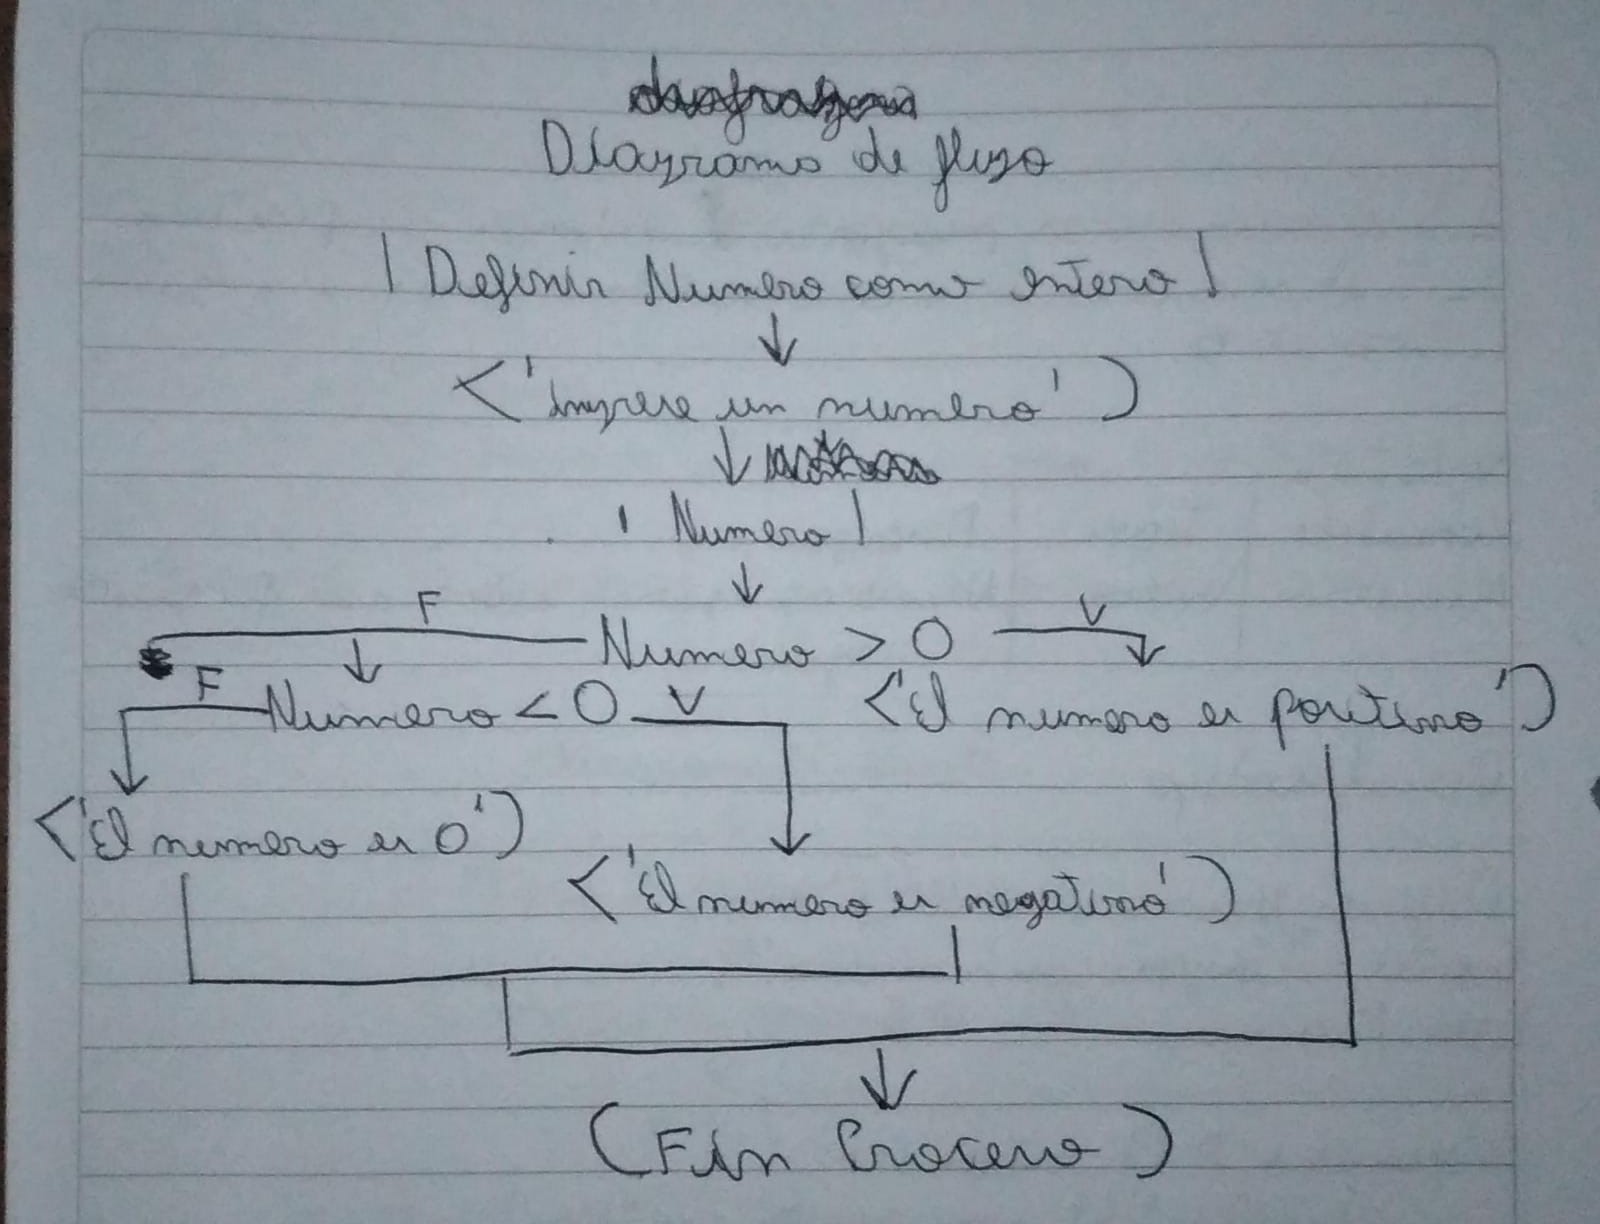 Diagrama de flujo
| Definir Numero como entero |
<'Ingrese un numero')
| Numero |
F Numero > 0 V
F Numero < 0 V <'El numero es positivo')
<'El numero es 0')
<'El numero es negativo')
(Fin Proceso)